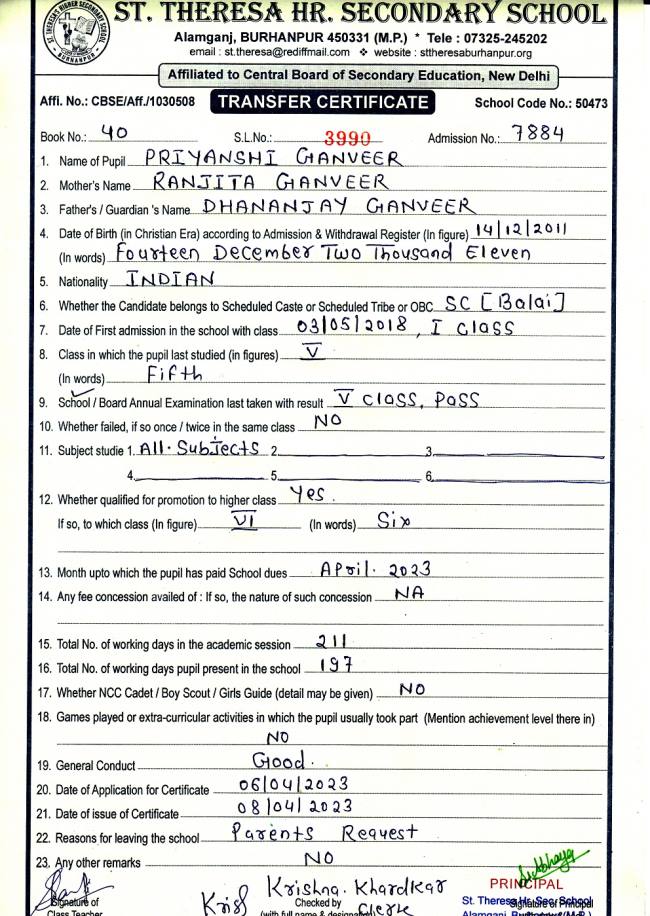 ST. THERESA HR. SECONDARY SCHOOL
Alamganj, BURHANPUR 450331 (M.P.) * Tele : 07325-245202
email : st.theresa@rediffmail.com ❖ website : sttheresaburhanpur.org
Affiliated to Central Board of Secondary Education, New Delhi
Affi. No.: CBSE/Aff./1030508 TRANSFER CERTIFICATE School Code No.: 50473
Book No.: 40 S.L.No.: 3990 Admission No.: 7884
1. Name of Pupil PRIYANSHI GANVEER
2. Mother's Name RANJITA GANVEER
3. Father's / Guardian 's Name DHANANJAY GANVEER
4. Date of Birth (in Christian Era) according to Admission & Withdrawal Register (In figure) 14/12/2011
(In words) Fourteen December Two Thousand Eleven
5. Nationality INDIAN
6. Whether the Candidate belongs to Scheduled Caste or Scheduled Tribe or OBC SC [Balai]
7. Date of First admission in the school with class 03/05/2018, I class
8. Class in which the pupil last studied (in figures) V
(In words) Fifth
9. School / Board Annual Examination last taken with result V class, Pass
10. Whether failed, if so once / twice in the same class NO
11. Subject studie 1. All. Subjects 2. 3.
4. 5. 6.
12. Whether qualified for promotion to higher class Yes.
If so, to which class (In figure) VI (In words) Six
13. Month upto which the pupil has paid School dues April. 2023
14. Any fee concession availed of : If so, the nature of such concession NA
15. Total No. of working days in the academic session 211
16. Total No. of working days pupil present in the school 197
17. Whether NCC Cadet / Boy Scout / Girls Guide (detail may be given) NO
18. Games played or extra-curricular activities in which the pupil usually took part (Mention achievement level there in)
NO
19. General Conduct Good.
20. Date of Application for Certificate 06/04/2023
21. Date of issue of Certificate 08/04/2023
22. Reasons for leaving the school Parents Request
23. Any other remarks NO
Krishna. Khardkar PRINCIPAL
Signature of Checked by St. Theresa Hr. Sec. School Signature of Principal
Class Teacher (with full name & designation) Clerk Alamganj, Burhanpur (M.P.)